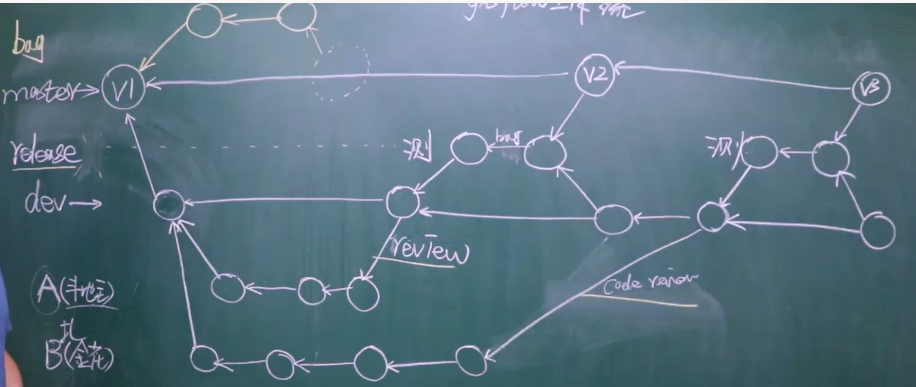 gitflow工作流
bug
master→ V1 V2 V3
release 测 bug 测
dev→
review
A(斗地主) Code review
B(金花)